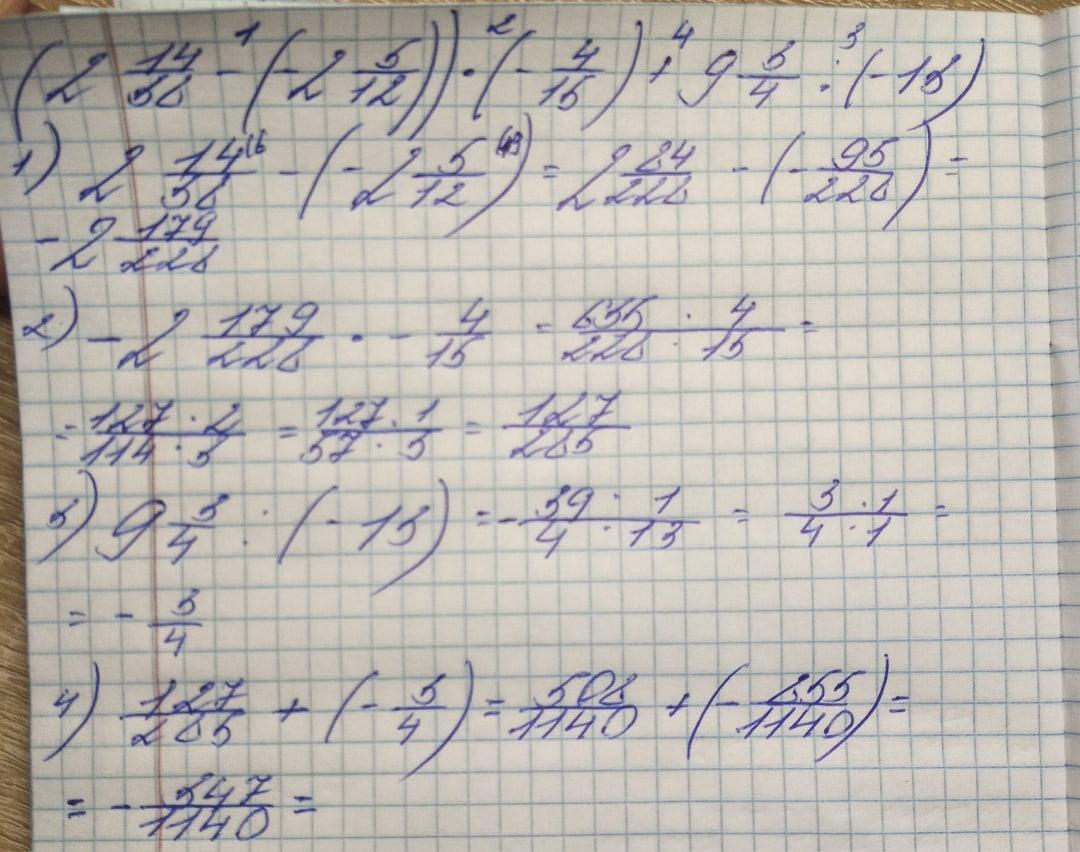 (2 14/38 - (-2 5/12)) · (-4/15) + 9 3/4 : (-13)
1) 2 14/38 - (-2 5/12) = 2 84/228 - (-95/228) =
-2 179/228
2) -2 179/228 · - 4/15 = 635 · 4/228 · 15 =
= 127 · 2/114 · 3 = 127 · 1/57 · 3 = 127/285
3) 9 3/4 : (-13) = - 39 · 1/4 · 13 = 3 · 1/4 · 1 =
= - 3/4
4) 127/285 + (-3/4) = 508/1140 + (-855/1140) =
= - 347/1140 =